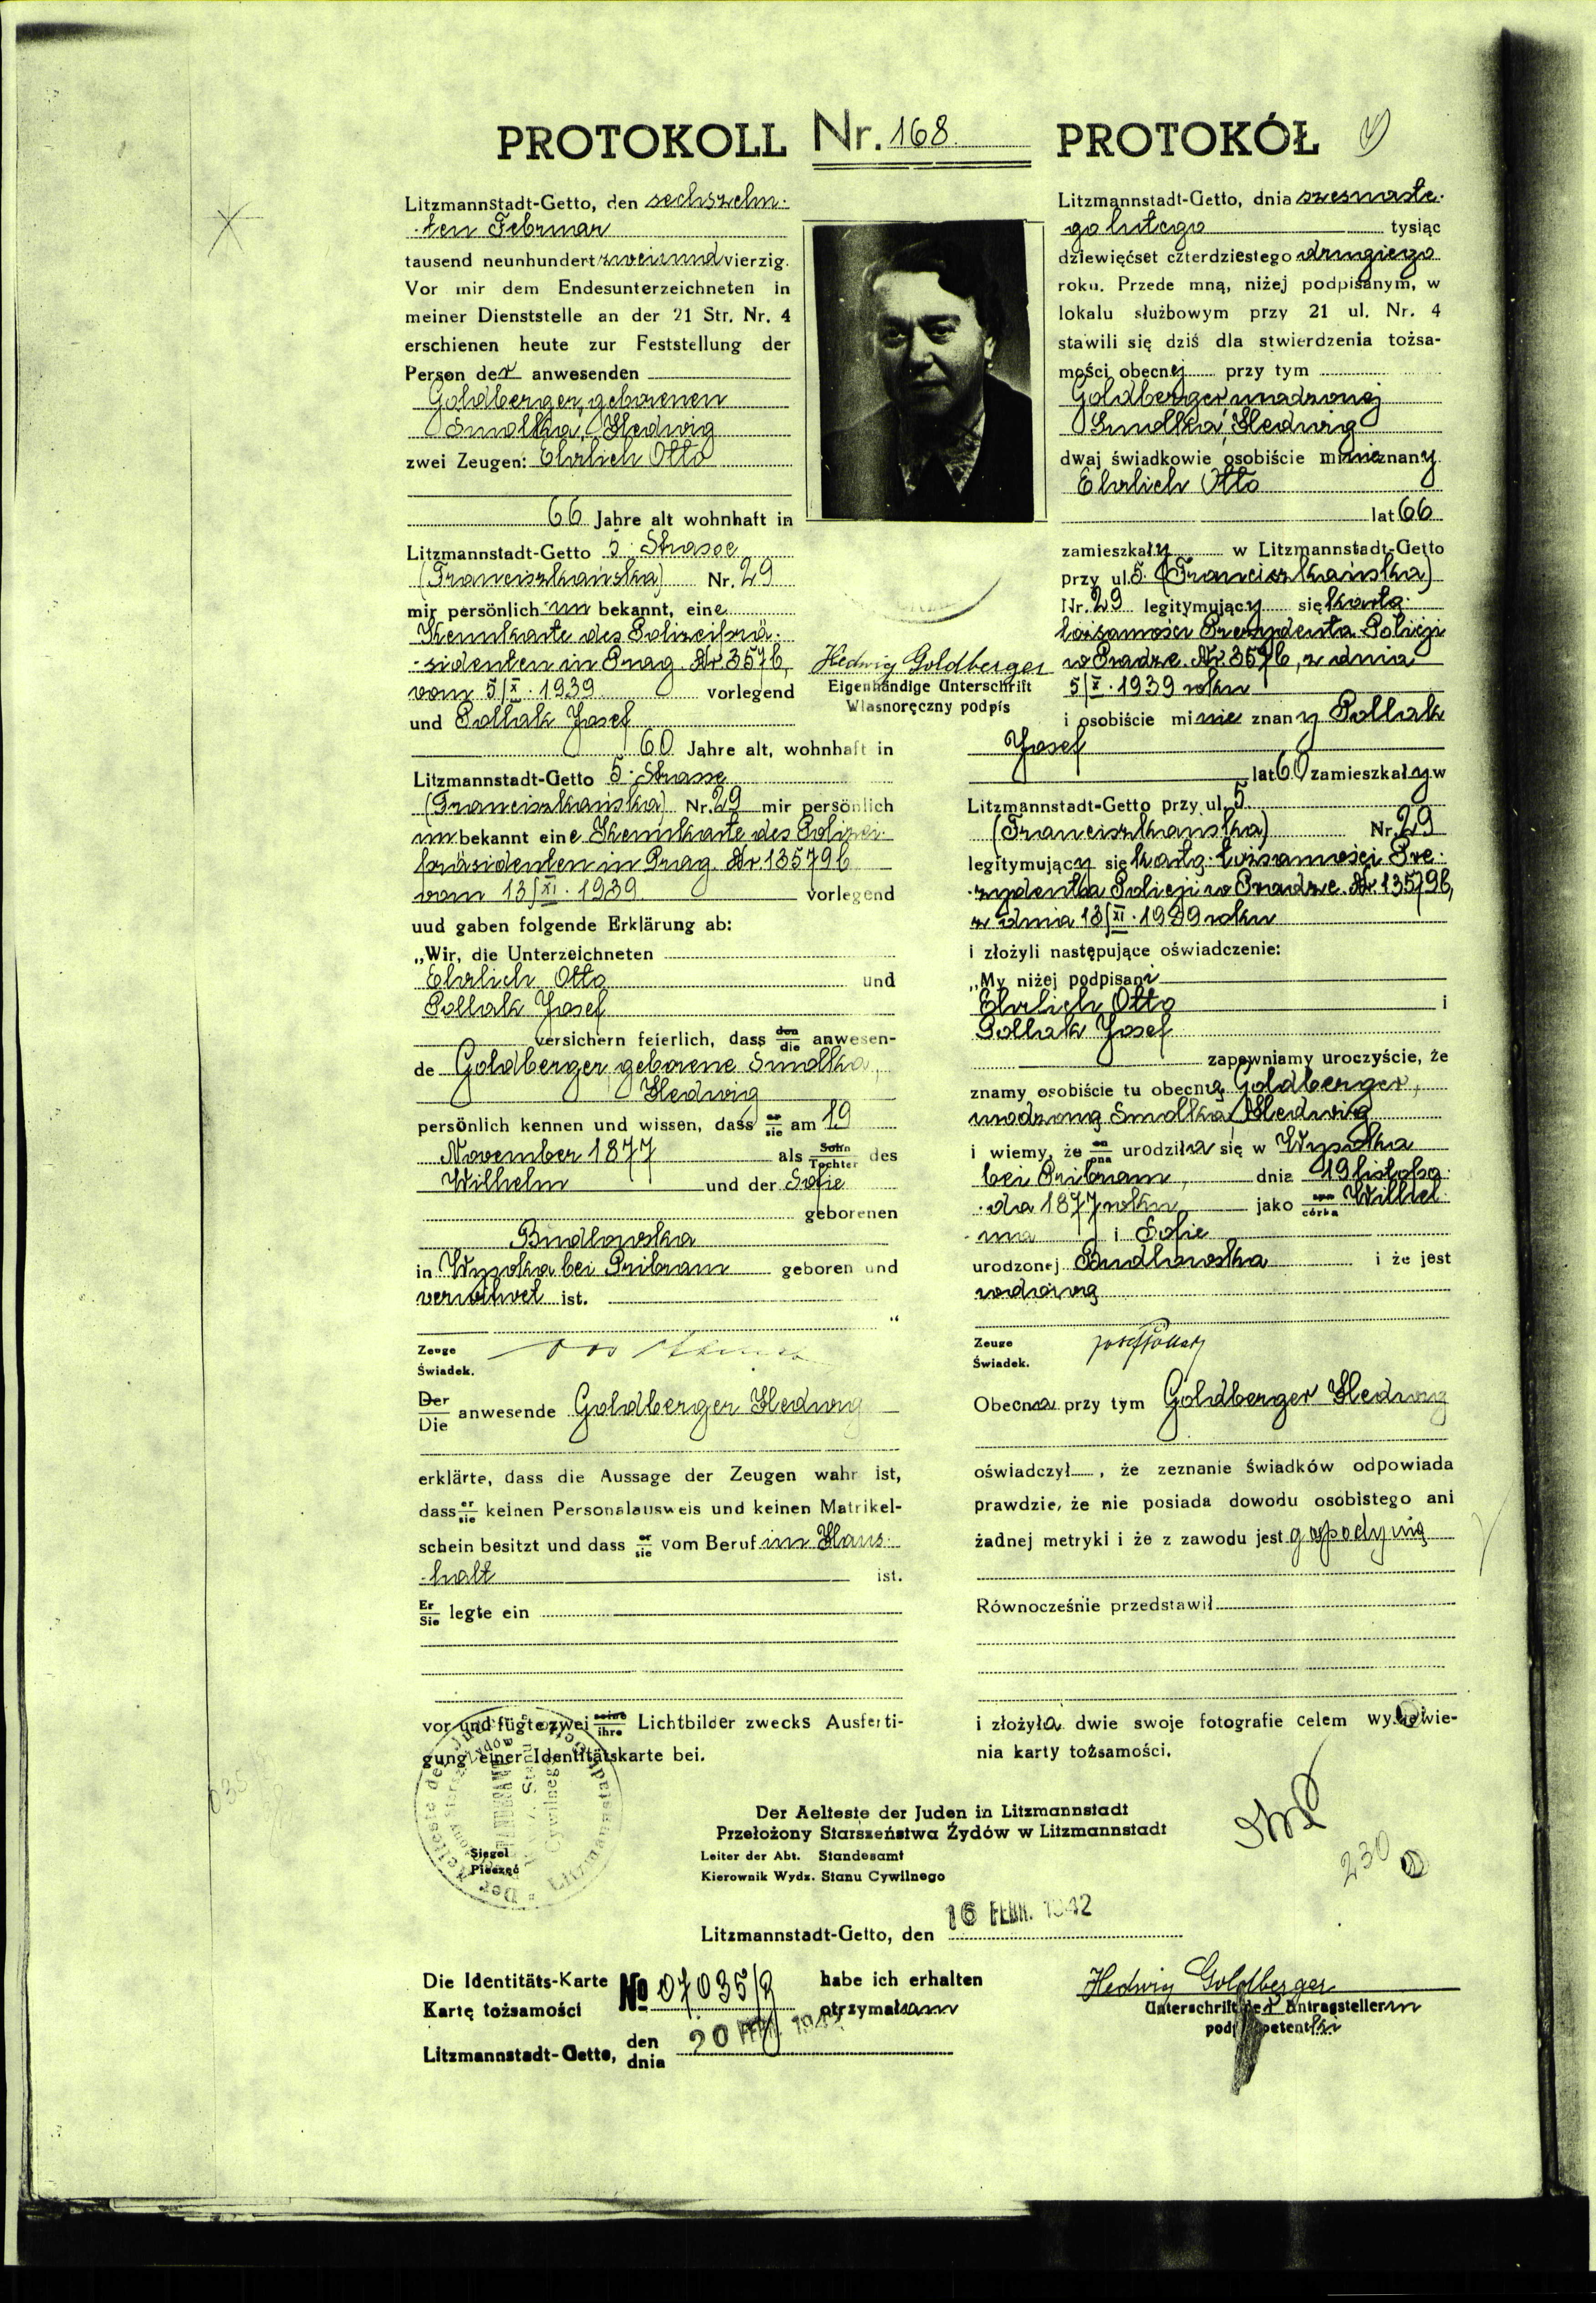 PROTOKOLL Nr. 168 PROTOKÓŁ
Litzmannstadt-Getto, den sechszehn-
-ten Februar
tausend neunhundert zweiund vierzig.
Vor mir dem Endesunterzeichneten in
meiner Dienststelle an der 21 Str. Nr. 4
erschienen heute zur Feststellung der
Person der anwesenden
Goldberger, geborenen
Smolka, Hedwig
zwei Zeugen: Ehrlich Otto
66 Jahre alt wohnhaft in
Litzmannstadt-Getto 5. Strasse
(Franciszkańska) Nr. 29
mir persönlich un bekannt, eine
Kennkarte des Polizeiprä-
-sidenten in Prag. Nr 3576,
vom 5/X. 1939 vorlegend
und Pollak Josef
60 Jahre alt, wohnhaft in
Litzmannstadt-Getto 5. Strasse
(Franciszkańska) Nr. 29 mir persönlich
un bekannt eine Kennkarte des Polizei-
präsidenten in Prag. Nr 135796
vom 13/XI. 1939 vorlegend
uud gaben folgende Erklärung ab:
„Wir, die Unterzeichneten
Ehrlich Otto und
Pollak Josef
versichern feierlich, dass den die anwesen-
de Goldberger, geborene Smolka,
Hedwig
persönlich kennen und wissen, dass er sie am 19
November 1877 als Sohn Tochter des
Wilhelm und der Sofie
geborenen
Budlowska
in Wysoka bei Pribram geboren und
verwitwet ist.
“
Zeuge
Świadek.
Der
Die anwesende Goldberger Hedwig
erklärte, dass die Aussage der Zeugen wahr ist,
dass er sie keinen Personalausweis und keinen Matrikel-
schein besitzt und dass er sie vom Beruf im Haus-
-halt ist.
Er
Sie legte ein
vor und fügte zwei seine ihre Lichtbilder zwecks Ausferti-
gung einer Identitätskarte bei.
Siegel
Pieczęć
Hedwig Goldberger
Eigenhändige Unterschrift
Własnoręczny podpis
Litzmannstadt-Getto, dnia szesnaste-
go lutego tysiąc
dziewięćset czterdziestego drugiego
roku. Przede mną, niżej podpisanym, w
lokalu służbowym przy 21 ul. Nr. 4
stawili się dziś dla stwierdzenia tożsa-
mości obecnej przy tym
Goldberger, urodzonej
Smolka, Hedwig
dwaj świadkowie osobiście mi nie znany
Ehrlich Otto
lat 66
zamieszkały w Litzmannstadt-Getto
przy ul. 5. (Franciszkańska)
Nr. 29 legitymujący się kartą
tożsamości Prezydenta Policji
w Pradze. Nr. 3576, z dnia
5/X. 1939 roku
i osobiście mi nie znany Pollak
Josef
lat 60 zamieszkały w
Litzmannstadt-Getto przy ul. 5
(Franciszkańska) Nr. 29
legitymujący się kartą tożsamości Pre-
-zydenta Policji w Pradze. Nr 135796,
z dnia 13/XI. 1939 roku
i złożyli następujące oświadczenie:
„My niżej podpisani
Ehrlich Otto i
Pollak Josef
zapewniamy uroczyście, że
znamy osobiście tu obecną Goldberger,
urodzoną Smolka, Hedwig
i wiemy, że on ona urodziła się w Wysoka
bei Pribram, dnia 19 listopa-
-da 1877 roku jako syn córka Wilhel-
-ma i Sofie
urodzonej Budlowska i że jest
wdową
Zeuge
Świadek. Josef Pollak
Obecna przy tym Goldberger Hedwig
oświadczył, że zeznanie świadków odpowiada
prawdzie, że nie posiada dowodu osobistego ani
żadnej metryki i że z zawodu jest gospodynią
Równocześnie przedstawił
i złożyła dwie swoje fotografie celem wystawie-
nia karty tożsamości.
Der Aelteste der Juden in Litzmannstadt
Przełożony Starszeństwa Żydów w Litzmannstadt
Leiter der Abt. Standesamt
Kierownik Wydz. Stanu Cywilnego
230
Litzmannstadt-Getto, den 16 FEBR. 1942
Die Identitäts-Karte
Kartę tożsamości No 07035/2 habe ich erhalten
otrzymałam
Litzmannstadt-Getto, den
dnia 20 FEBR. 1942
Hedwig Goldberger
Unterschrift der Antragstellerin
petentki